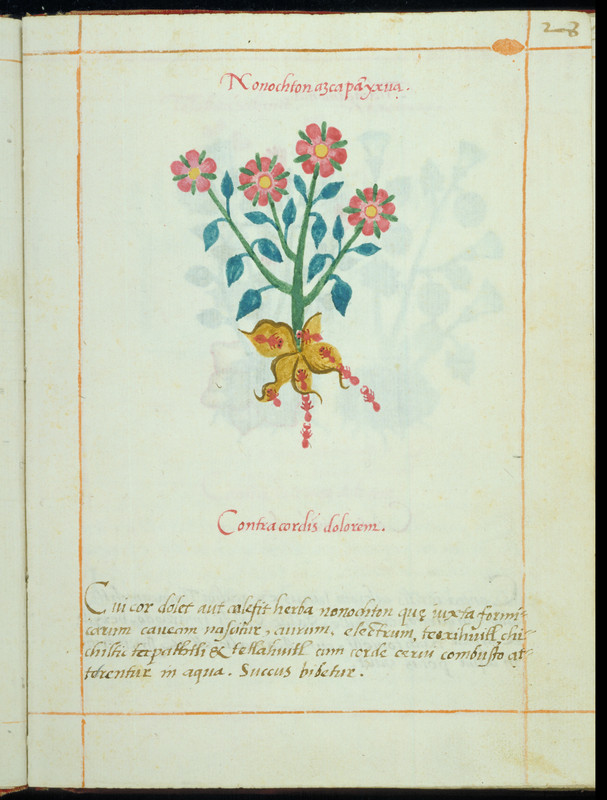 28
Nonochton azcapãyxua.
Contra cordis dolorem.
Cui cor dolet aut calefit herba nonochton quę iuxta formi-
carum caveam nascitur, aurum, electrum, teoxihuitl, chi-
chiltic tapachtli & tetlahuitl cum corde cervi combusto at-
terentur in aqua. Succus bibetur.